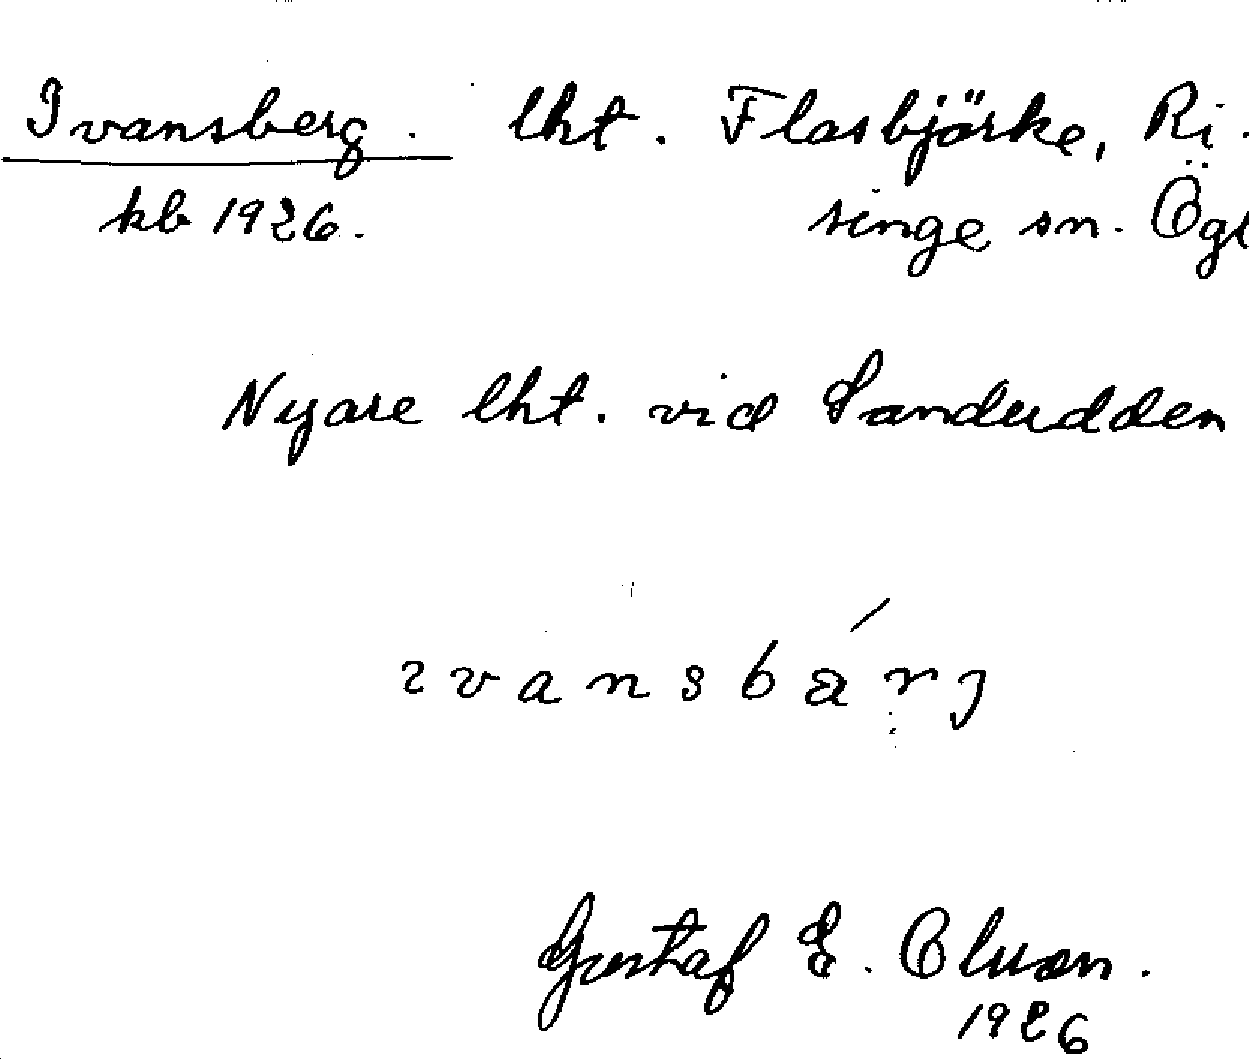 Ivansberg. lht. Flasbjörke, Ri.
kb 1926. singe sn. Ögl
Nyare lht. vid Sandudden
ivansbárj
Gustaf E. Oluson.
1926